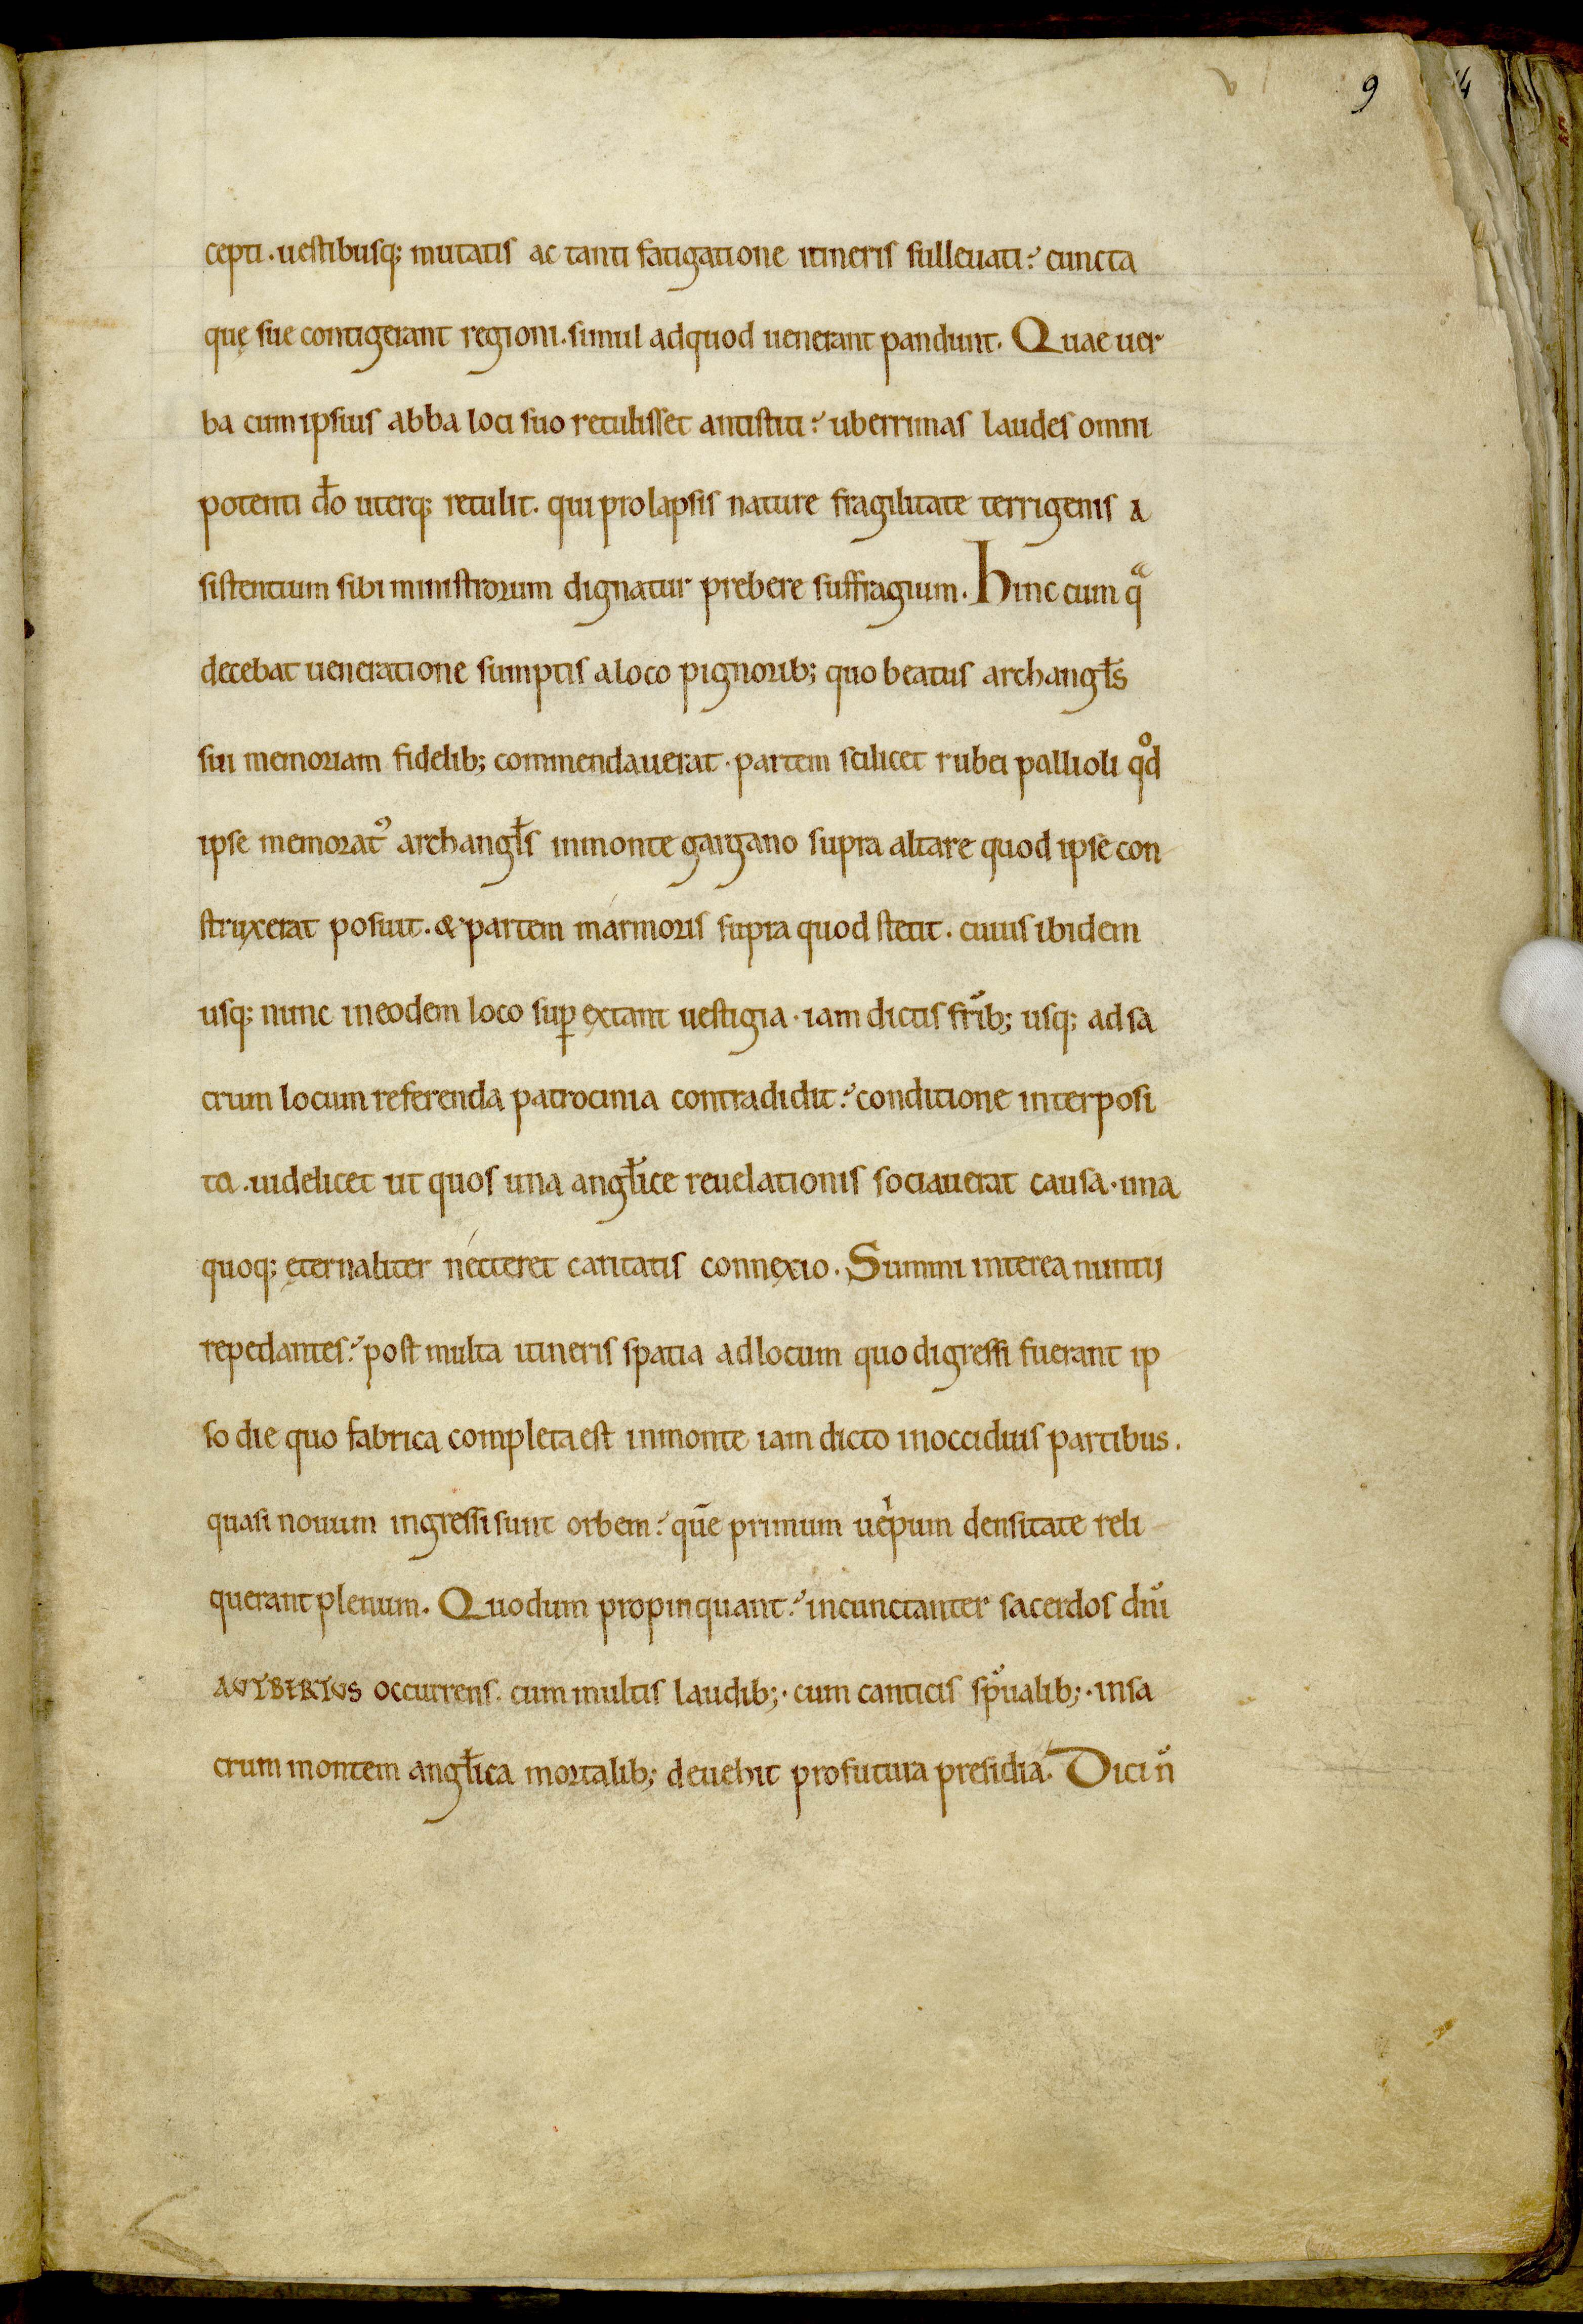 9 4
cepti. uestibusq; mutatis ac tanti fatigatione itineris sulleuati? cuncta
quę sue contigerant regioni. simul adquod uenerant pandunt. Quae uer
ba cum ipsius abba loci suo retulisset antistiti? uberrimas laudes omni
potenti do̅ uterq; retulit. qui prolapsis nature fragilitate terrigenis a
sistentium sibi ministrorum dignatur prebere suffragium. Hinc cum qͣ
decebat ueneratione sumptis a loco pignorib; quo beatus archangl̅s
sui memoriam fidelib; commendauerat. partem scilicet rubei pallioli qͦd
ipse memorat᾽ archangl̅s inmonte gargano supra altare quod ipse con
struxerat posuit. & partem marmoris supra quod stetit. cuius ibidem
usq; nunc ineodem loco suꝑ extant uestigia. iam dictis fr̅ib; usq; ad sa
crum locum referenda patrocinia contradidit? conditione interposi
ta. uidelicet ut quos una angl̅ice reuelationis sociauerat causa. una
quoq; ęternaliter necteret caritatis connexio. Summi interea nuntij
repedantes? post multa itineris spatia adlocum quo digressi fuerant ip
so die quo fabrica completa est inmonte iam dicto inoccidius partibus.
quasi nouum ingressi sunt orbem? que̅ primum uep̍ium densitate reli
querant plenum. Quo dum propinquant? incunctanter sacerdos dn̅i
AUTBERTUS occurrens. cum multis laudib;. cum canticis sp̅ualib;. insa
crum montem angl̅ica mortalib; deuehit profutura presidia. Dici n̅